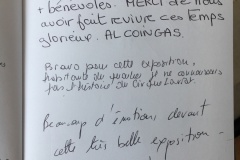 + bénévoles. MERCI de nous
avoir fait revivre ces temps
glorieux. ALCOINGAS.
Bravo pour cette exposition,
habitant du quartier je ne connaissais
pas l'histoire du Cirque
Beaucoup d'émotions devant
cette très belle exposition -